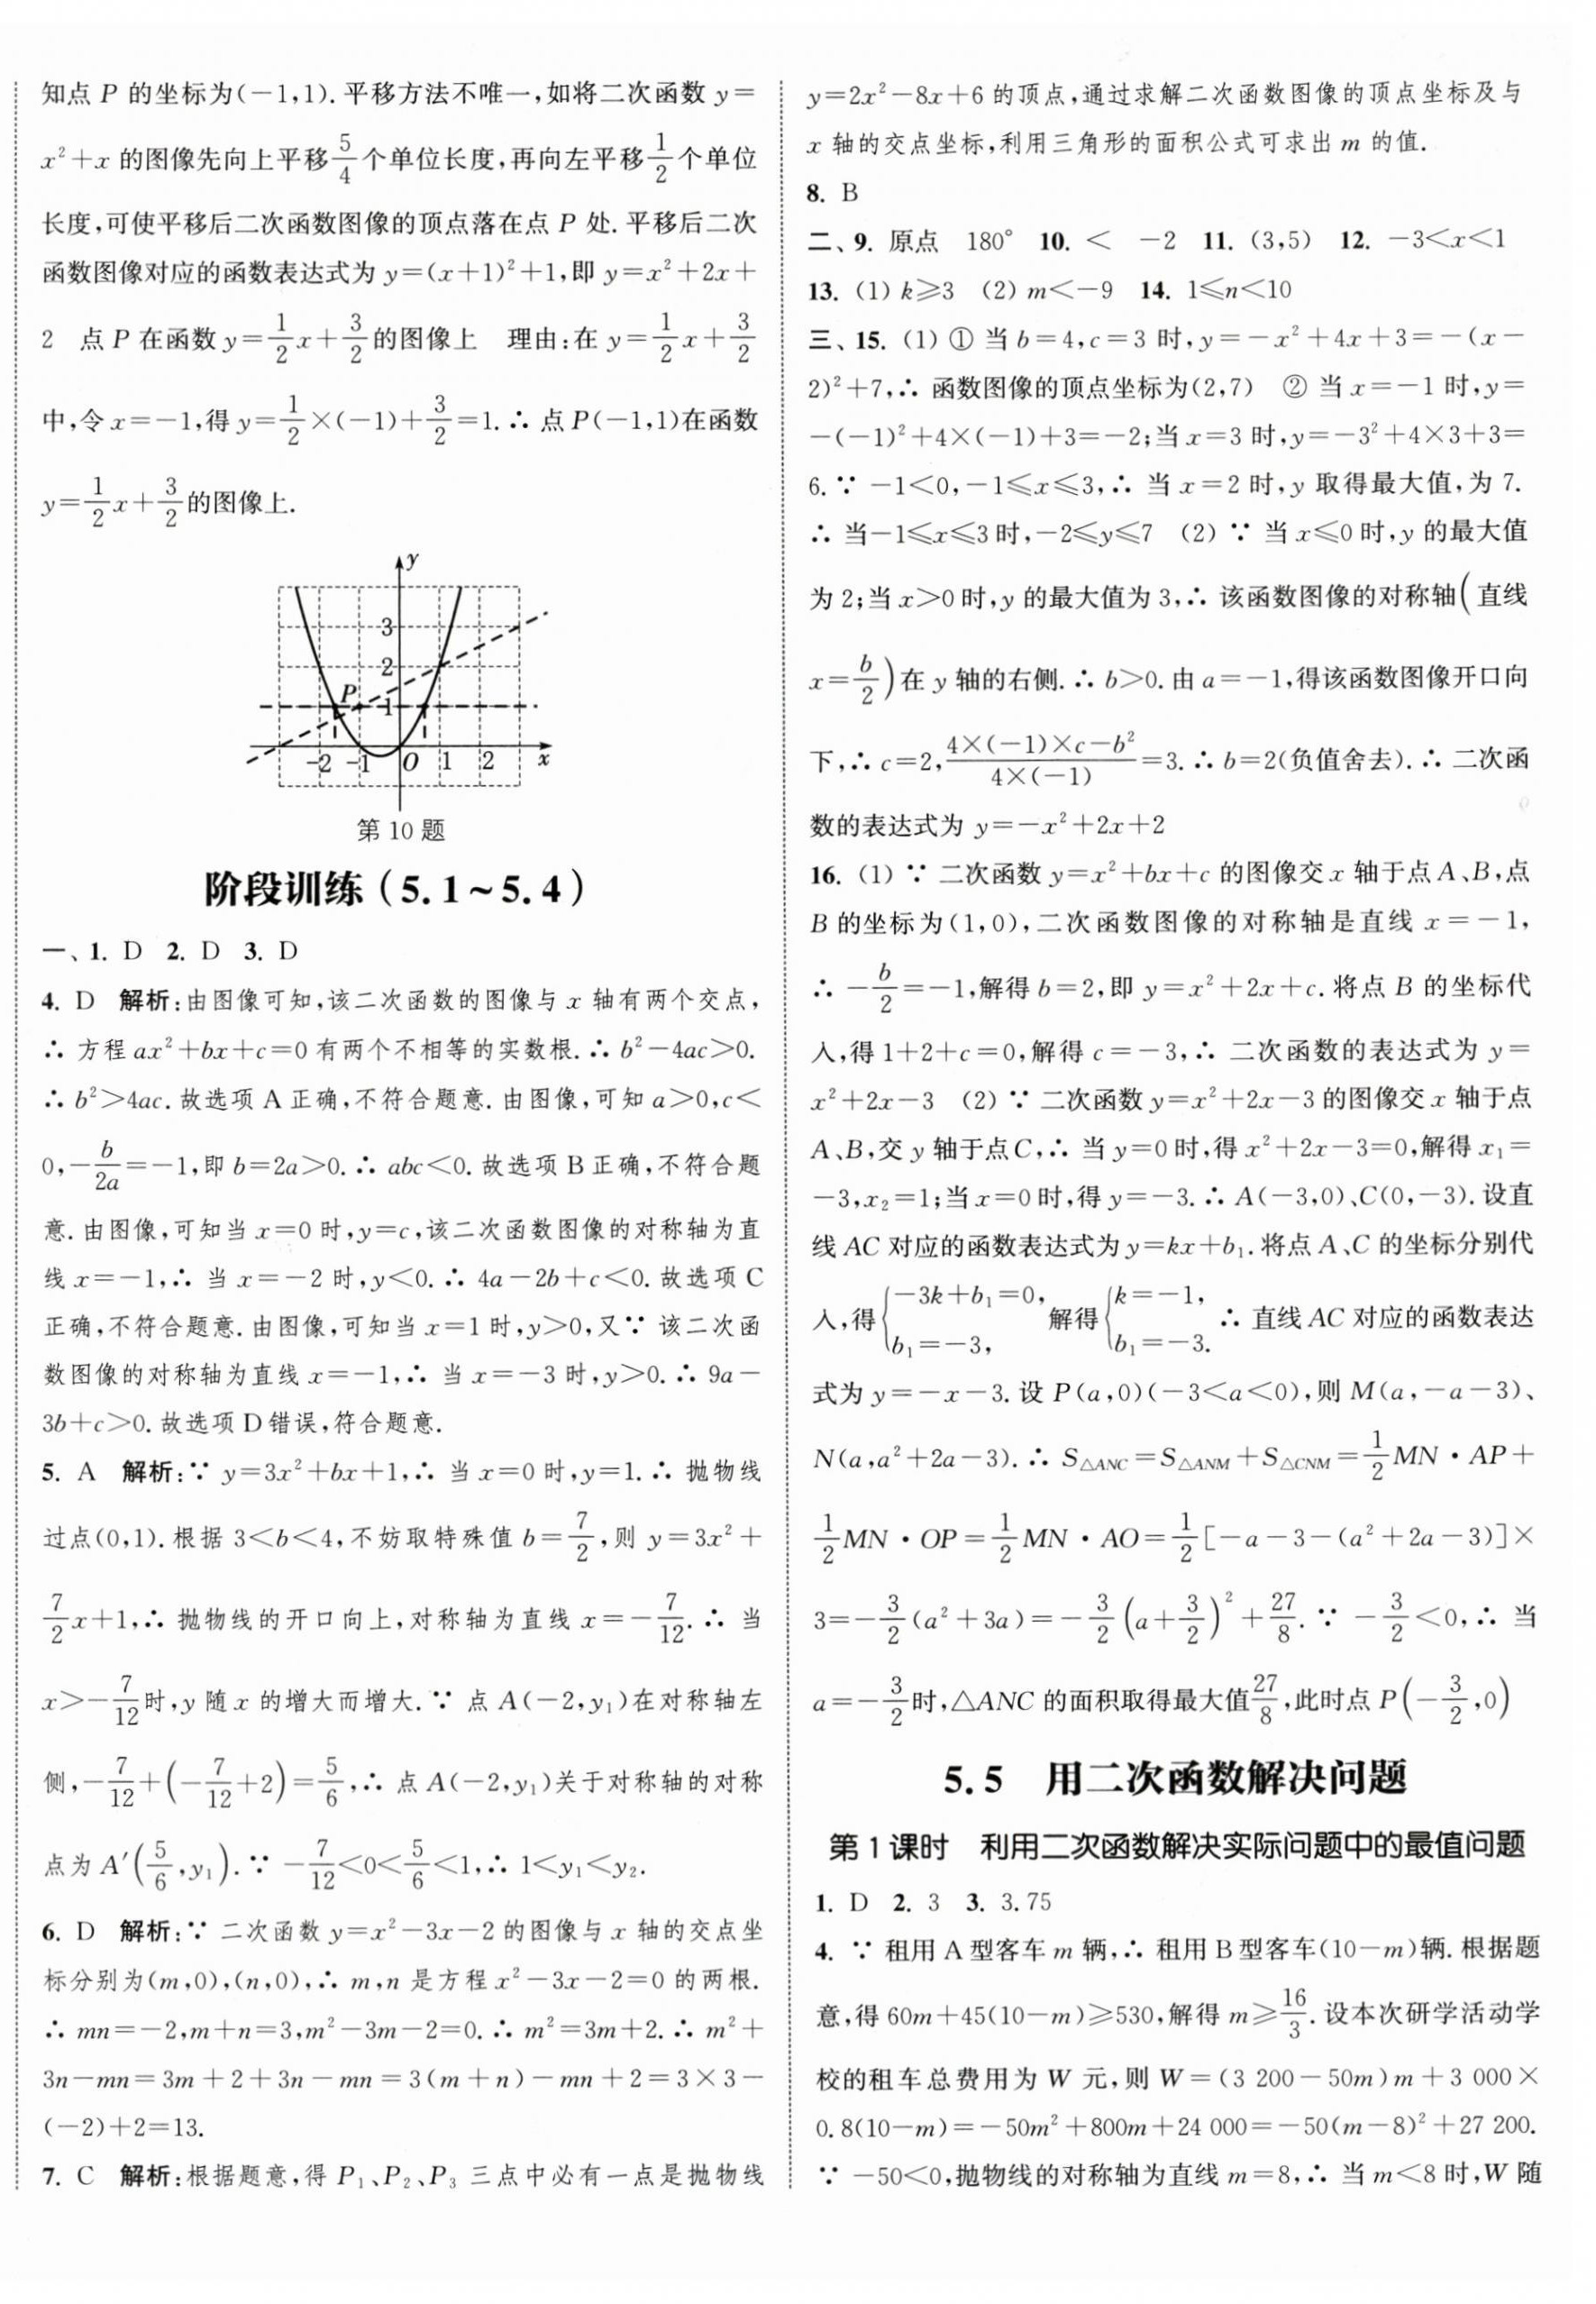 知点 P 的坐标为(－1,1). 平移方法不唯一,如将二次函数 y＝
x²＋x 的图像先向上平移5/4个单位长度,再向左平移1/2个单位
长度,可使平移后二次函数图像的顶点落在点 P 处. 平移后二次
函数图像对应的函数表达式为 y＝(x＋1)²＋1,即 y＝x²＋2x＋
2　点 P 在函数 y＝1/2x＋3/2的图像上　理由:在 y＝1/2x＋3/2
中,令 x＝－1,得 y＝1/2×(－1)＋3/2＝1. ∴ 点 P(－1,1)在函数
y＝1/2x＋3/2的图像上.
y
3
2
P
1
－2 －1 O 1 2 x
第 10 题
阶段训练(5.1～5.4)
一、1. D 2. D 3. D
4. D 解析:由图像可知,该二次函数的图像与 x 轴有两个交点,
∴ 方程 ax²＋bx＋c＝0 有两个不相等的实数根. ∴ b²－4ac＞0.
∴ b²＞4ac. 故选项 A 正确,不符合题意. 由图像,可知 a＞0,c＜
0,－b/2a＝－1,即 b＝2a＞0. ∴ abc＜0. 故选项 B 正确,不符合题
意. 由图像,可知当 x＝0 时,y＝c,该二次函数图像的对称轴为直
线 x＝－1,∴ 当 x＝－2 时,y＜0. ∴ 4a－2b＋c＜0. 故选项 C
正确,不符合题意. 由图像,可知当 x＝1 时,y＞0,又∵ 该二次函
数图像的对称轴为直线 x＝－1,∴ 当 x＝－3 时,y＞0. ∴ 9a－
3b＋c＞0. 故选项 D 错误,符合题意.
5. A 解析:∵ y＝3x²＋bx＋1,∴ 当 x＝0 时,y＝1. ∴ 抛物线
过点(0,1). 根据 3＜b＜4,不妨取特殊值 b＝7/2,则 y＝3x²＋
7/2x＋1,∴ 抛物线的开口向上,对称轴为直线 x＝－7/12. ∴ 当
x＞－7/12时,y 随 x 的增大而增大. ∵ 点 A(－2,y₁)在对称轴左
侧,－7/12＋(－7/12＋2)＝5/6,∴ 点 A(－2,y₁)关于对称轴的对称
点为 A′(5/6,y₁). ∵ －7/12＜0＜5/6＜1,∴ 1＜y₁＜y₂.
6. D 解析:∵ 二次函数 y＝x²－3x－2 的图像与 x 轴的交点坐
标分别为(m,0),(n,0),∴ m,n 是方程 x²－3x－2＝0 的两根.
∴ mn＝－2,m＋n＝3,m²－3m－2＝0. ∴ m²＝3m＋2. ∴ m²＋
3n－mn＝3m＋2＋3n－mn＝3(m＋n)－mn＋2＝3×3－
(－2)＋2＝13.
7. C 解析:根据题意,得 P₁、P₂、P₃ 三点中必有一点是抛物线
y＝2x²－8x＋6 的顶点,通过求解二次函数图像的顶点坐标及与
x 轴的交点坐标,利用三角形的面积公式可求出 m 的值.
8. B
二、9. 原点　180° 10. ＜　－2 11. (3,5) 12. －3＜x＜1
13. (1) k≥3 (2) m＜－9 14. 1≤n＜10
三、15. (1) ① 当 b＝4,c＝3 时,y＝－x²＋4x＋3＝－(x－
2)²＋7,∴ 函数图像的顶点坐标为(2,7)　② 当 x＝－1 时,y＝
－(－1)²＋4×(－1)＋3＝－2;当 x＝3 时,y＝－3²＋4×3＋3＝
6. ∵ －1＜0,－1≤x≤3,∴ 当 x＝2 时,y 取得最大值,为 7.
∴ 当－1≤x≤3 时,－2≤y≤7 (2) ∵ 当 x≤0 时,y 的最大值
为 2;当 x＞0 时,y 的最大值为 3,∴ 该函数图像的对称轴(直线
x＝b/2)在 y 轴的右侧. ∴ b＞0. 由 a＝－1,得该函数图像开口向
下,∴ c＝2,(4×(－1)×c－b²)/(4×(－1))＝3. ∴ b＝2(负值舍去). ∴ 二次函
数的表达式为 y＝－x²＋2x＋2
16. (1) ∵ 二次函数 y＝x²＋bx＋c 的图像交 x 轴于点 A、B,点
B 的坐标为(1,0),二次函数图像的对称轴是直线 x＝－1,
∴ －b/2＝－1,解得 b＝2,即 y＝x²＋2x＋c. 将点 B 的坐标代
入,得 1＋2＋c＝0,解得 c＝－3,∴ 二次函数的表达式为 y＝
x²＋2x－3 (2) ∵ 二次函数 y＝x²＋2x－3 的图像交 x 轴于点
A、B,交 y 轴于点 C,∴ 当 y＝0 时,得 x²＋2x－3＝0,解得 x₁＝
－3,x₂＝1;当 x＝0 时,得 y＝－3. ∴ A(－3,0)、C(0,－3). 设直
线 AC 对应的函数表达式为 y＝kx＋b₁. 将点 A、C 的坐标分别代
入,得{－3k＋b₁＝0, b₁＝－3, 解得{k＝－1, b₁＝－3. ∴ 直线 AC 对应的函数表达
式为 y＝－x－3. 设 P(a,0)(－3＜a＜0),则 M(a,－a－3)、
N(a,a²＋2a－3). ∴ S△ANC＝S△ANM＋S△CNM＝1/2MN·AP＋
1/2MN·OP＝1/2MN·AO＝1/2[－a－3－(a²＋2a－3)]×
3＝－3/2(a²＋3a)＝－3/2(a＋3/2)²＋27/8. ∵ －3/2＜0,∴ 当
a＝－3/2时,△ANC 的面积取得最大值27/8,此时点 P(－3/2,0)
5.5　用二次函数解决问题
第 1 课时　利用二次函数解决实际问题中的最值问题
1. D 2. 3 3. 3.75
4. ∵ 租用 A 型客车 m 辆,∴ 租用 B 型客车(10－m)辆. 根据题
意,得 60m＋45(10－m)≥530,解得 m≥16/3. 设本次研学活动学
校的租车总费用为 W 元,则 W＝(3 200－50m)m＋3 000×
0.8(10－m)＝－50m²＋800m＋24 000＝－50(m－8)²＋27 200.
∵ －50＜0,抛物线的对称轴为直线 m＝8,∴ 当 m＜8 时,W 随